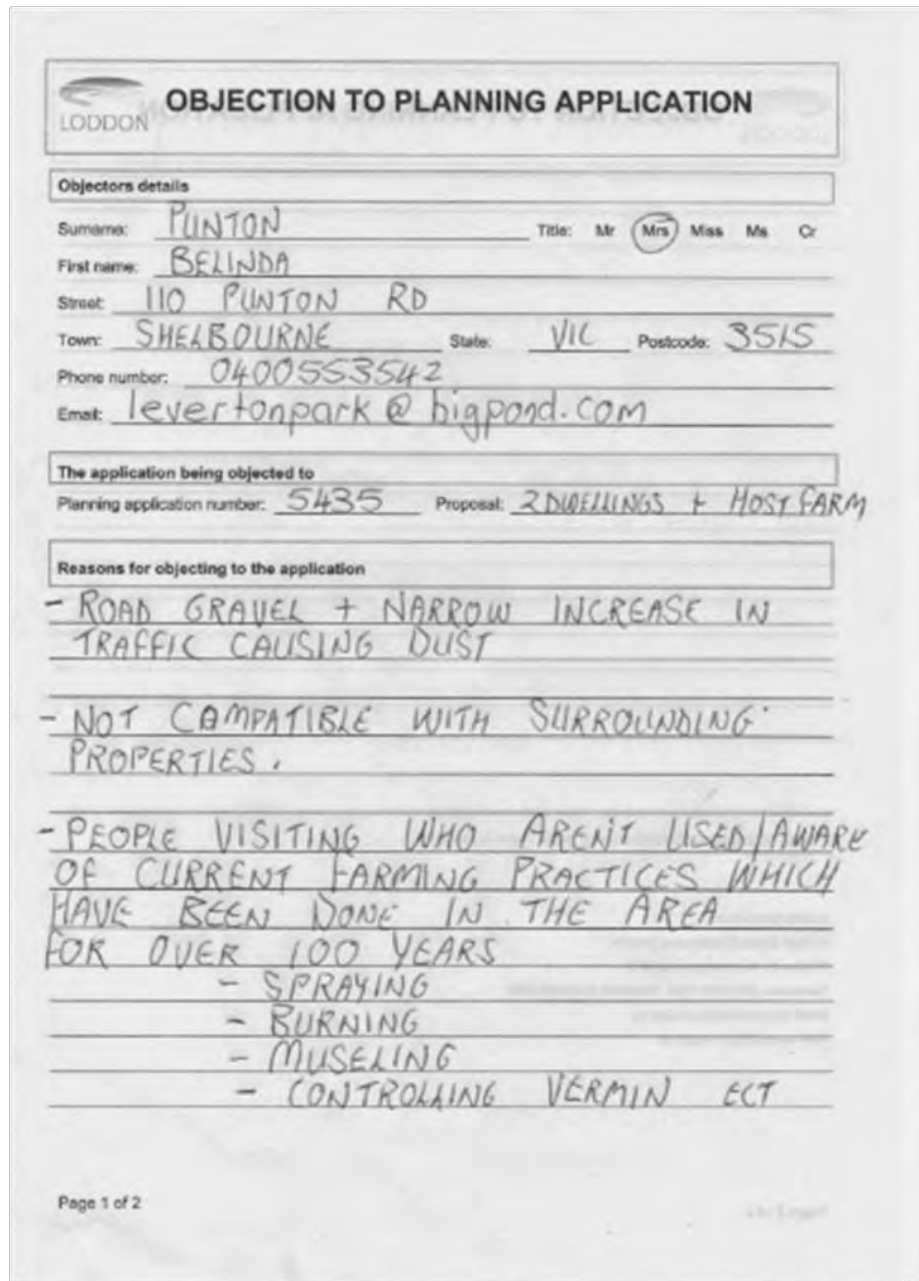 LODDON
OBJECTION TO PLANNING APPLICATION
Objectors details
Surname: PUNTON Title: Mr Mrs Miss Ms Cr
First name: BELINDA
Street: 110 PUNTON RD
Town: SHELBOURNE State: VIC Postcode: 3515
Phone number: 0400553542
Email: levertonpark@bigpond.com
The application being objected to
Planning application number: 5435 Proposal: 2 DWELLINGS + HOST FARM
Reasons for objecting to the application
- ROAD GRAVEL + NARROW INCREASE IN
TRAFFIC CAUSING DUST
- NOT COMPATIBLE WITH SURROUNDING
PROPERTIES.
- PEOPLE VISITING WHO AREN'T USED/AWARE
OF CURRENT FARMING PRACTICES WHICH
HAVE BEEN DONE IN THE AREA
FOR OVER 100 YEARS
- SPRAYING
- BURNING
- MUSELING
- CONTROLLING VERMIN ECT
Page 1 of 2